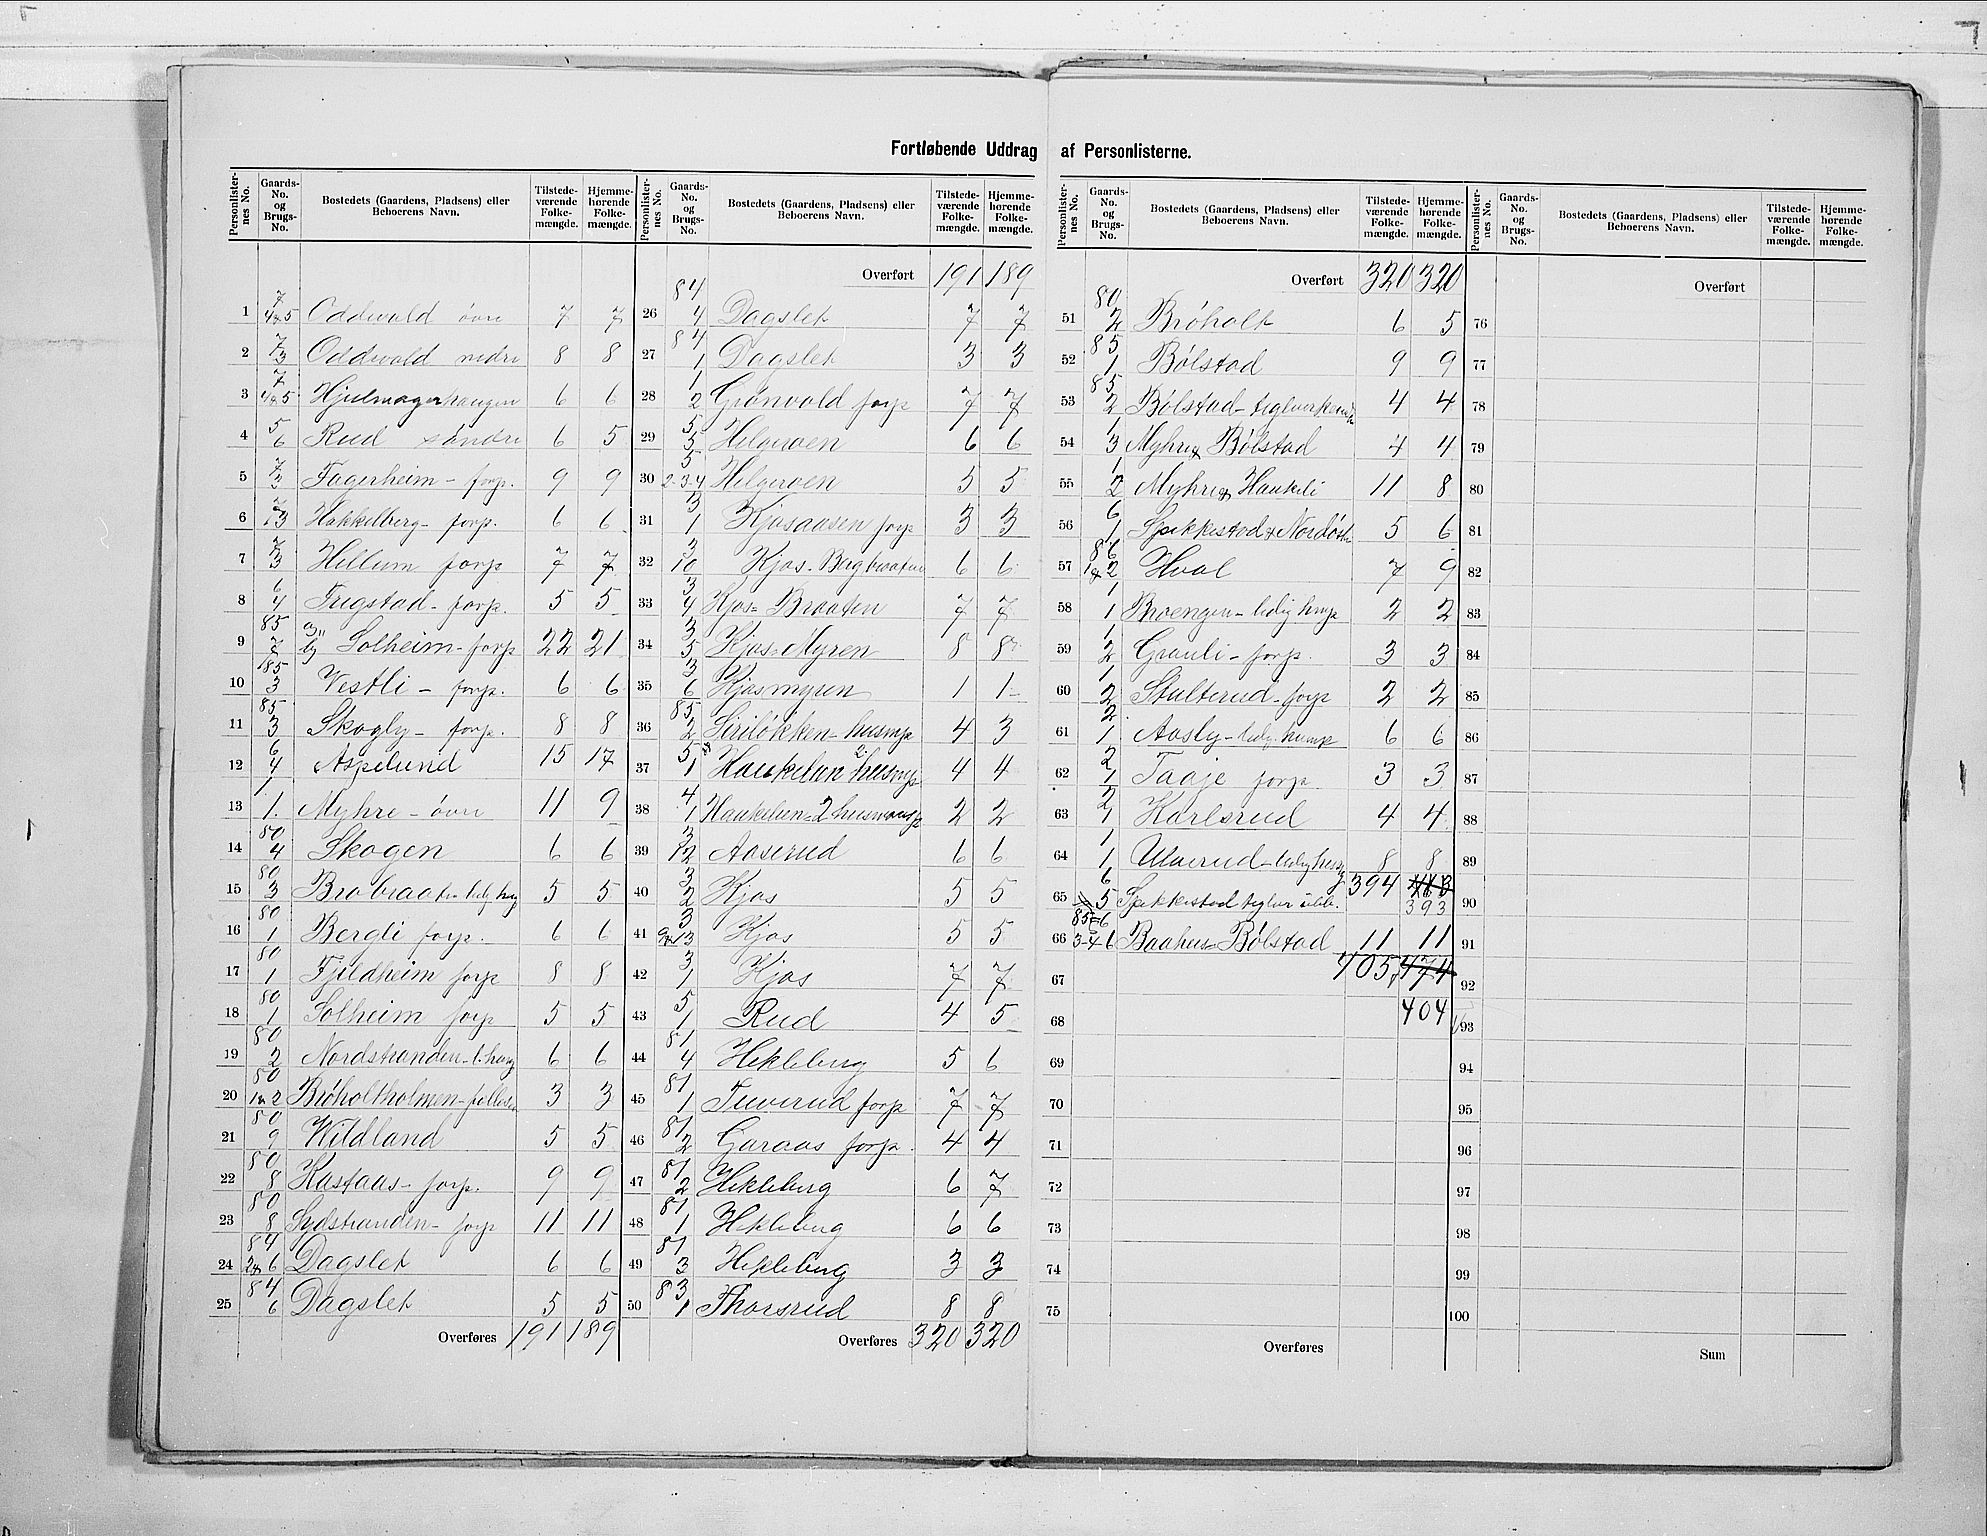 Fortløbende Uddrag af Personlisterne.
Personlister-nes No. | Gaards-No. og Brugs-No. | Bostedets (Gaardens, Pladsens) eller Beboerens Navn. | Tilstede-værende Folke-mængde. | Hjemme-hørende Folke-mængde.
1 7 4&5 Oddevold övre 7 7
2 7 3 Oddevold nedre 8 8
3 7 4&5 Hjulmagerhaugen 6 6
4 5 6 Rud söndre 6 5
5 7 3 Fagerheim - forp. 9 9
6 7 13 Hakkelberg - forp. 6 6
7 7 3 Hellum forp 7 7
8 6 4 Frigstad - forp. 5 5
9 85 7 Solheim - forp 22 21
10 185 3 Vestli - forp. 6 6
11 85 3 Skogly - forp. 8 8
12 6 4 Aspelund 15 17
13 1 1. Myhre - övre 11 9
14 80 4 Skogen 6 6
15 80 3 Brobraaten 5 5
16 80 1 Bergli forp. 6 6
17 80 1 Fjeldheim forp 8 8
18 80 1 Solheim forp 5 5
19 80 2 Nordstranden 6 6
20 80 1&2 Bröholtholmen 3 3
21 80 9 Wildland 5 5
22 80 8 Kastaas - forp. 9 9
23 80 8 Sydstranden - forp 11 11
24 84 2&6 Dagslet 6 6
25 84 6 Dagslet 5 5
Overføres 191 189
Personlister-nes No. | Gaards-No. og Brugs-No. | Bostedets (Gaardens, Pladsens) eller Beboerens Navn. | Tilstede-værende Folke-mængde. | Hjemme-hørende Folke-mængde.
Overført 191 189
26 84 4 Dagslet 7 7
27 84 1 Dagslet 3 3
28 1 2 Grönvold forp 7 7
29 5 5 Helgeroen 6 6
30 5 2-3-4 Helgeroen 5 5
31 3 1 Kjosaasen forp 3 3
32 3 10 Kjos - Bergbraaten 6 6
33 3 4 Kjos - Braaten 7 7
34 3 5 Kjos - Myren 8 8
35 3 6 Kjosmyren 1 1
36 85 2 Siriløkken - husmp 4 3
37 5 1 Haukelien 2 husmp 4 4
38 4 1 Haukelien - 2 husmandsp 2 2
39 3 12 Aaserud 6 6
40 3 2 Kjos 5 5
41 3 9&13 Kjos 5 5
42 3 1 Kjos 7 7
43 5 1 Rud 4 5
44 81 4 Hekleberg 5 6
45 81 1 Tuverud forp 7 7
46 81 2 Garaas forp. 4 4
47 81 2 Hekleberg 6 7
48 81 1 Hekleberg 6 6
49 81 3 Hekleberg 3 3
50 83 1 Thorsrud 8 8
Overføres 320 320
Personlister-nes No. | Gaards-No. og Brugs-No. | Bostedets (Gaardens, Pladsens) eller Beboerens Navn. | Tilstede-værende Folke-mængde. | Hjemme-hørende Folke-mængde.
Overført 320 320
51 80 2 Bröholt 6 5
52 85 1 Bølstad 9 9
53 85 2 Bølstad - teglverk 4 4
54 1 3 Myhre & Bølstad 4 4
55 1 2 Myhre & Haukeli 11 8
56 6 1 Spikkestad 5 6
57 86 1&2 Hval 7 9
58 1 1 Broengen - ledig husp 2 2
59 1 2 Granli - forp. 3 3
60 1 2 Stulterud - forp 2 2
61 2 1 Aasby - ledig husmp 6 6
62 2 1 Taaje forp. 3 3
63 2 1 Karlsrud 4 4
64 1 1 Ulverud - ledig 8 8
394 413
65 6 5 Spikkestad teglv 393
66 85-6 3-4 6 Baahus - Bølstad 11 11
67 405 474
68 404
69
70
71
72
73
74
75
Overføres
Personlister-nes No. | Gaards-No. og Brugs-No. | Bostedets (Gaardens, Pladsens) eller Beboerens Navn. | Tilstede-værende Folke-mængde. | Hjemme-hørende Folke-mængde.
Overført
76
77
78
79
80
81
82
83
84
85
86
87
88
89
90
91
92
93
94
95
96
97
98
99
100
Sum